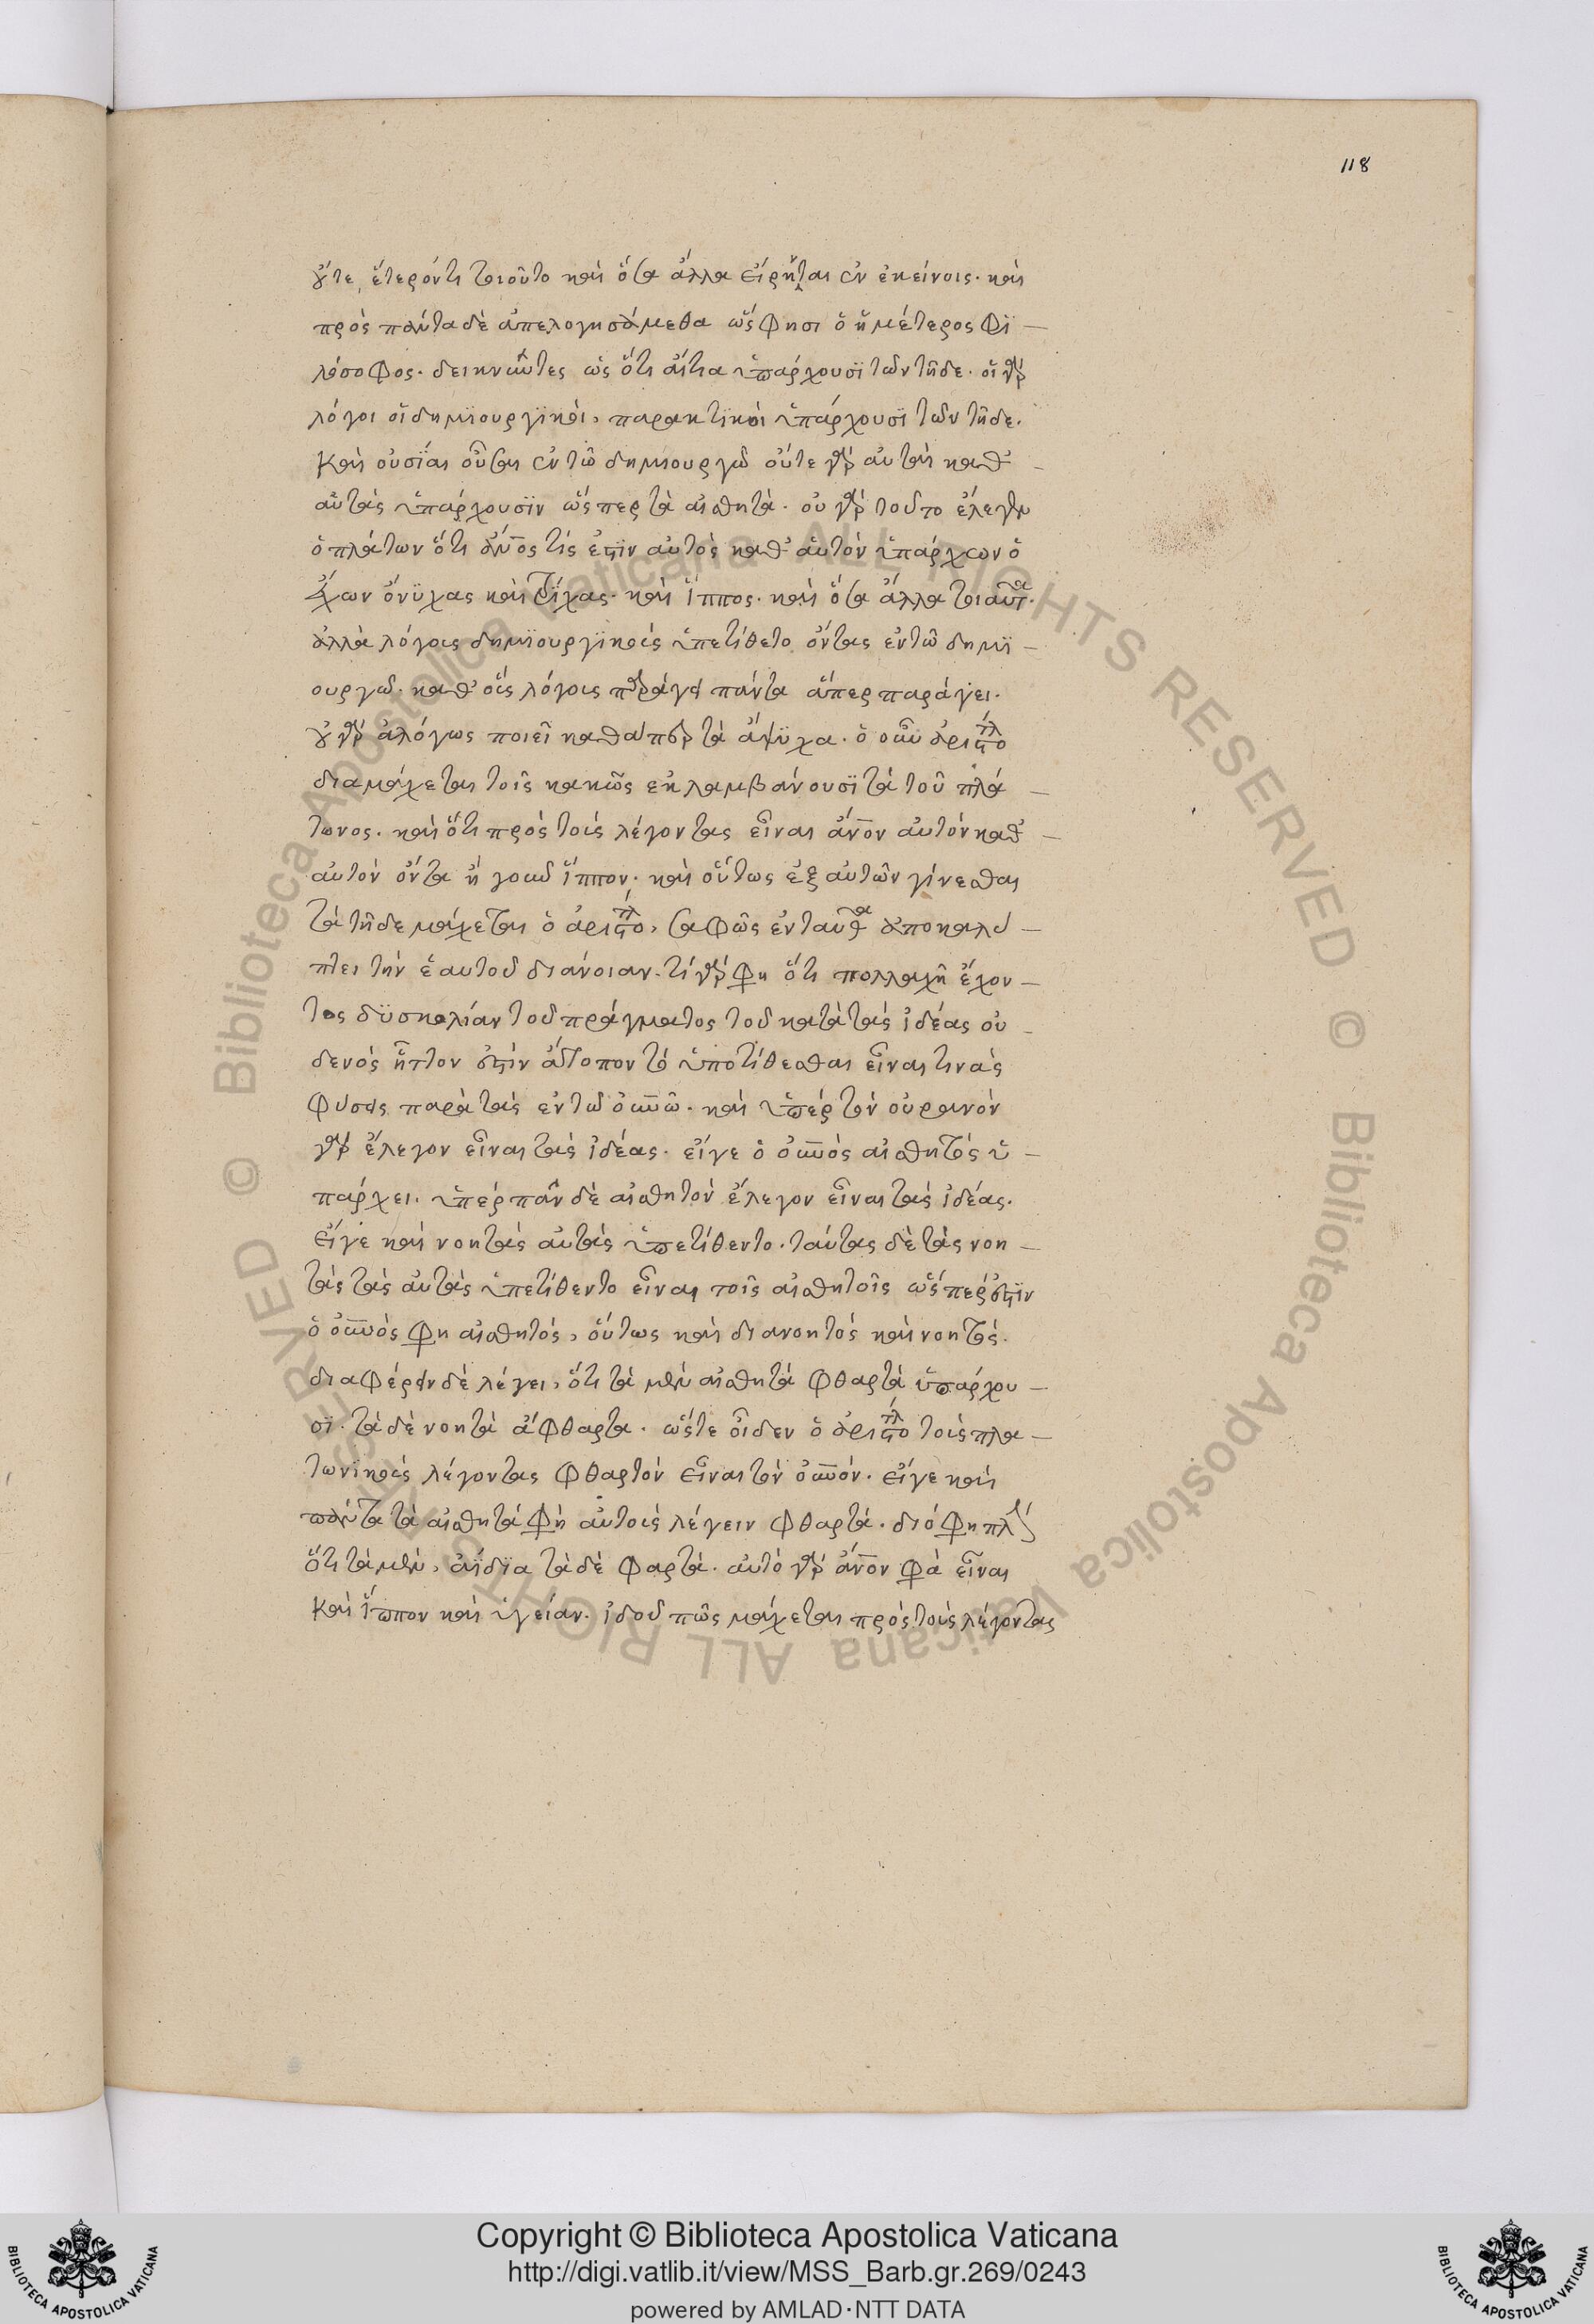 118
οὔτε ἕτερόν τι τοιοῦτο καὶ ὅσα ἄλλα εἴρηνται ἐν ἐκείνοις· καὶ
πρὸς πάντα δὲ ἀπελογησάμεθα ὥς φησι ὁ ἡμέτερος φϊ—
λόσοφος· δεικνῦντες ὡς ὅτι αἴτια ὑπάρχουσϊ τῶν τῆδε· οἱ γὰρ
λόγοι οἱ δημϊουργϊκοὶ, παρακτϊκοὶ ὑπάρχουσϊ τῶν τῆδε.
Καὶ οὐσΐαι οὖσαι ἐν τῶ δημιουργῶ οὔτε γὰρ αὐταὶ καθ’ —
αὑτὰς ὑπάρχουσϊν ὥσπερ τὰ αἰσθητὰ· οὐ γὰρ τοῦτο ἔλεγεν
ὁ πλάτων ὅτι ἄν̅ος τίς ἐστϊν αὐτὸς καθ’ αὑτὸν ὑπάρχων ὁ
ἔχων ὄνϋχας καὶ τρΐχας· καὶ ἵππος· καὶ ὅσα ἄλλα τοιαῦτα·
ἀλλὰ λόγοις δημϊουργϊκοὶς ὑπετίθετο ὄντας ἐν τῶ δημϊ —
ουργῶ· καθ’ οἷς λόγοις παράγει πάντα ἅπερ παράγει.
οὐ γὰρ ἀλόγως ποιεῖ καθάπερ τὰ ἄψϋχα· ὁ οὖν ἀριστο<sup>τλ</sup>
διαμάχεται τοῖς κακῶς ἐκλαμβάνουσϊ τὰ τοῦ πλά —
τωνος· καὶ ὅτι πρὸς τοὶς λέγοντας εἶναι ἄν̅ον αὐτὸν καθ’ —
αὐτὸν ὄντα ἢ γοῦν ἵππον· καὶ οὕτως ἐξ αὐτῶν γίνεσθαι
τὰ τῆδε μάχεται ὁ ἀριστο<sup>τλ</sup>, σαφῶς ἐνταῦθα ἀποκαλύ —
πτει τὴν ἑαυτοῦ διάνοιαν· τί γὰρ φη ὅτι πολλαχῆ ἔχον —
τος δϋσκολίαν τοῦ πράγματος τοῦ κατὰ τὰς ἰδέας οὐ —
δενὸς ἧττον ἐστὶν ἄτοπον τὸ ὑποτίθεσθαι εἶναι τινὰς
φύσεις παρὰ τὰς ἐν τῶ οὐ̅νῶ· καὶ ὑπὲρ τὸν οὐρανὸν
γὰρ ἔλεγον εἶναι τὰς ἰδέας· εἴγε ὁ οὐ̅νὸς αἰσθητὸς ὑ —
πάρχει. ὑπὲρ πᾶν δὲ αἰσθητὸν ἔλεγον εἶναι τὰς ἰδέας.
εἴγε καὶ νοητὰς αὐτὰς ὑπετίθεντο· ταύτας δὲ τὰς νοη —
τὰς τὰς αὐτὰς ὑπετίθεντο εἶναι τοῖς αἰσθητοῖς ὥσπερ ἐστϊν
ὁ οὐ̅νὸς φη αἰσθητὸς, οὕτως καὶ διανοητὸς καὶ νοητὸς.
διαφέρειν δὲ λέγει, ὅτι τὰ μὲν αἰσθητὰ φθαρτὰ ὑπάρχου —
σϊ· τὰ δὲ νοητὰ ἄφθαρτα· ὥστε οἶδεν ὁ ἀριστο<sup>τλ</sup> τοὶς πλα —
τωνϊκοὶς λέγοντας φθαρτὸν εἶναι τὸν οὐ̅νόν· εἴγε καὶ
πάντα τὰ αἰσθητὰ φὴ αὐτοὶς λέγειν φθαρτὰ· διό φη πλ
ὅτι τὰ μὲν, ἀΐδϊα τὰ δὲ φαρτὰ· αὐτὸ γὰρ ἄν̅ον φὰ εἶναι
Καὶ ἵππον καὶ ὑγείαν· ἰδοῦ πῶς μάχεται πρὸς τοὺς λέγοντας
Copyright © Biblioteca Apostolica Vaticana
http://digi.vatlib.it/view/MSS_Barb.gr.269/0243
powered by AMLAD·NTT DATA
BIBLIOTECA APOSTOLICA VATICANA
BIBLIOTECA APOSTOLICA VATICANA
© Biblioteca Apostolica Vaticana ALL RIGHTS RESERVED © Biblioteca Apostolica Vaticana ALL RIGHTS RESERVED